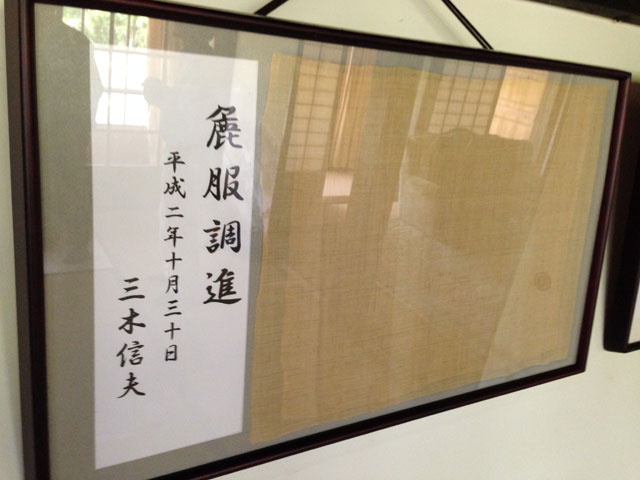 麁服調進
平成二年十月三十日
三木信夫